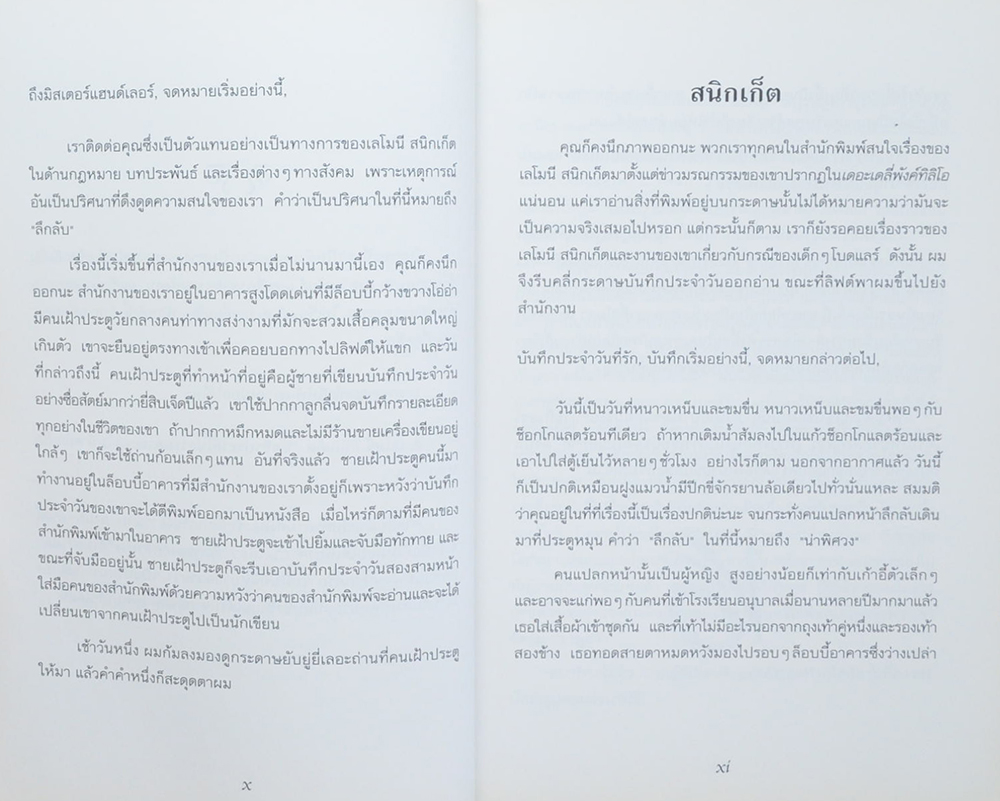 ถึงมิสเตอร์แฮนด์เลอร์, จดหมายเริ่มอย่างนี้,
เราติดต่อคุณซึ่งเป็นตัวแทนอย่างเป็นทางการของเลโมนี สนิกเก็ต
ในด้านกฎหมาย บทประพันธ์ และเรื่องต่างๆ ทางสังคม เพราะเหตุการณ์
อันเป็นปริศนาที่ดึงดูดความสนใจของเรา คำว่าเป็นปริศนาในที่นี้หมายถึง
"ลึกลับ"
เรื่องนี้เริ่มขึ้นที่สำนักงานของเราเมื่อไม่นานมานี้เอง คุณก็คงนึก
ออกนะ สำนักงานของเราอยู่ในอาคารสูงโดดเด่นที่มีล็อบบี้กว้างขวางโอ่อ่า
มีคนเฝ้าประตูวัยกลางคนท่าทางสง่างามที่มักจะสวมเสื้อคลุมขนาดใหญ่
เกินตัว เขาจะยืนอยู่ตรงทางเข้าเพื่อคอยบอกทางไปลิฟต์ให้แขก และวัน
ที่กล่าวถึงนี้ คนเฝ้าประตูที่ทำหน้าที่อยู่คือผู้ชายที่เขียนบันทึกประจำวัน
อย่างซื่อสัตย์มากว่ายี่สิบเจ็ดปีแล้ว เขาใช้ปากกาลูกลื่นจดบันทึกรายละเอียด
ทุกอย่างในชีวิตของเขา ถ้าปากกาหมึกหมดและไม่มีร้านขายเครื่องเขียนอยู่
ใกล้ๆ เขาก็จะใช้ถ่านก้อนเล็กๆ แทน อันที่จริงแล้ว ชายเฝ้าประตูคนนี้มา
ทำงานอยู่ในล็อบบี้อาคารที่มีสำนักงานของเราตั้งอยู่ก็เพราะหวังว่าบันทึก
ประจำวันของเขาจะได้ตีพิมพ์ออกมาเป็นหนังสือ เมื่อไหร่ก็ตามที่มีคนของ
สำนักพิมพ์เข้ามาในอาคาร ชายเฝ้าประตูจะเข้าไปยิ้มและจับมือทักทาย และ
ขณะที่จับมืออยู่นั้น ชายเฝ้าประตูก็จะรีบเอาบันทึกประจำวันสองสามหน้า
ใส่มือคนของสำนักพิมพ์ด้วยความหวังว่าคนของสำนักพิมพ์จะอ่านและจะได้
เปลี่ยนเขาจากคนเฝ้าประตูไปเป็นนักเขียน
เช้าวันหนึ่ง ผมก้มลงมองดูกระดาษยับยู่ยี่เลอะถ่านที่คนเฝ้าประตู
ให้มา แล้วคำคำหนึ่งก็สะดุดตาผม
x
สนิกเก็ต
คุณก็คงนึกภาพออกนะ พวกเราทุกคนในสำนักพิมพ์สนใจเรื่องของ
เลโมนี สนิกเก็ตมาตั้งแต่ข่าวมรณกรรมของเขาปรากฏในเดอะเดลี่พังค์ทิลิโอ
แน่นอน แค่เราอ่านสิ่งที่พิมพ์อยู่บนกระดาษนั้นไม่ได้หมายความว่ามันจะ
เป็นความจริงเสมอไปหรอก แต่กระนั้นก็ตาม เราก็ยังรอคอยเรื่องราวของ
เลโมนี สนิกเก็ตและงานของเขาเกี่ยวกับกรณีของเด็กๆ โบดแลร์ ดังนั้น ผม
จึงรีบคลี่กระดาษบันทึกประจำวันออกอ่าน ขณะที่ลิฟต์พาผมขึ้นไปยัง
สำนักงาน
บันทึกประจำวันที่รัก, บันทึกเริ่มอย่างนี้, จดหมายกล่าวต่อไป,
วันนี้เป็นวันที่หนาวเหน็บและขมขื่น หนาวเหน็บและขมขื่นพอๆ กับ
ช็อกโกแลตร้อนทีเดียว ถ้าหากเติมน้ำส้มลงไปในแก้วช็อกโกแลตร้อนและ
เอาไปใส่ตู้เย็นไว้หลายๆ ชั่วโมง อย่างไรก็ตาม นอกจากอากาศแล้ว วันนี้
ก็เป็นปกติเหมือนฝูงแมวน้ำมีปีกขี่จักรยานล้อเดียวไปทั่วนั่นแหละ สมมติ
ว่าคุณอยู่ในที่ที่เรื่องนี้เป็นเรื่องปกติน่ะนะ จนกระทั่งคนแปลกหน้าลึกลับเดิน
มาที่ประตูหมุน คำว่า "ลึกลับ" ในที่นี้หมายถึง "น่าพิศวง"
คนแปลกหน้านั้นเป็นผู้หญิง สูงอย่างน้อยก็เท่ากับเก้าอี้ตัวเล็กๆ
และอาจจะแก่พอๆ กับคนที่เข้าโรงเรียนอนุบาลเมื่อนานหลายปีมากมาแล้ว
เธอใส่เสื้อผ้าเข้าชุดกัน และที่เท้าไม่มีอะไรนอกจากถุงเท้าคู่หนึ่งและรองเท้า
สองข้าง เธอทอดสายตาหมดหวังมองไปรอบๆ ล็อบบี้อาคารซึ่งว่างเปล่า
xi